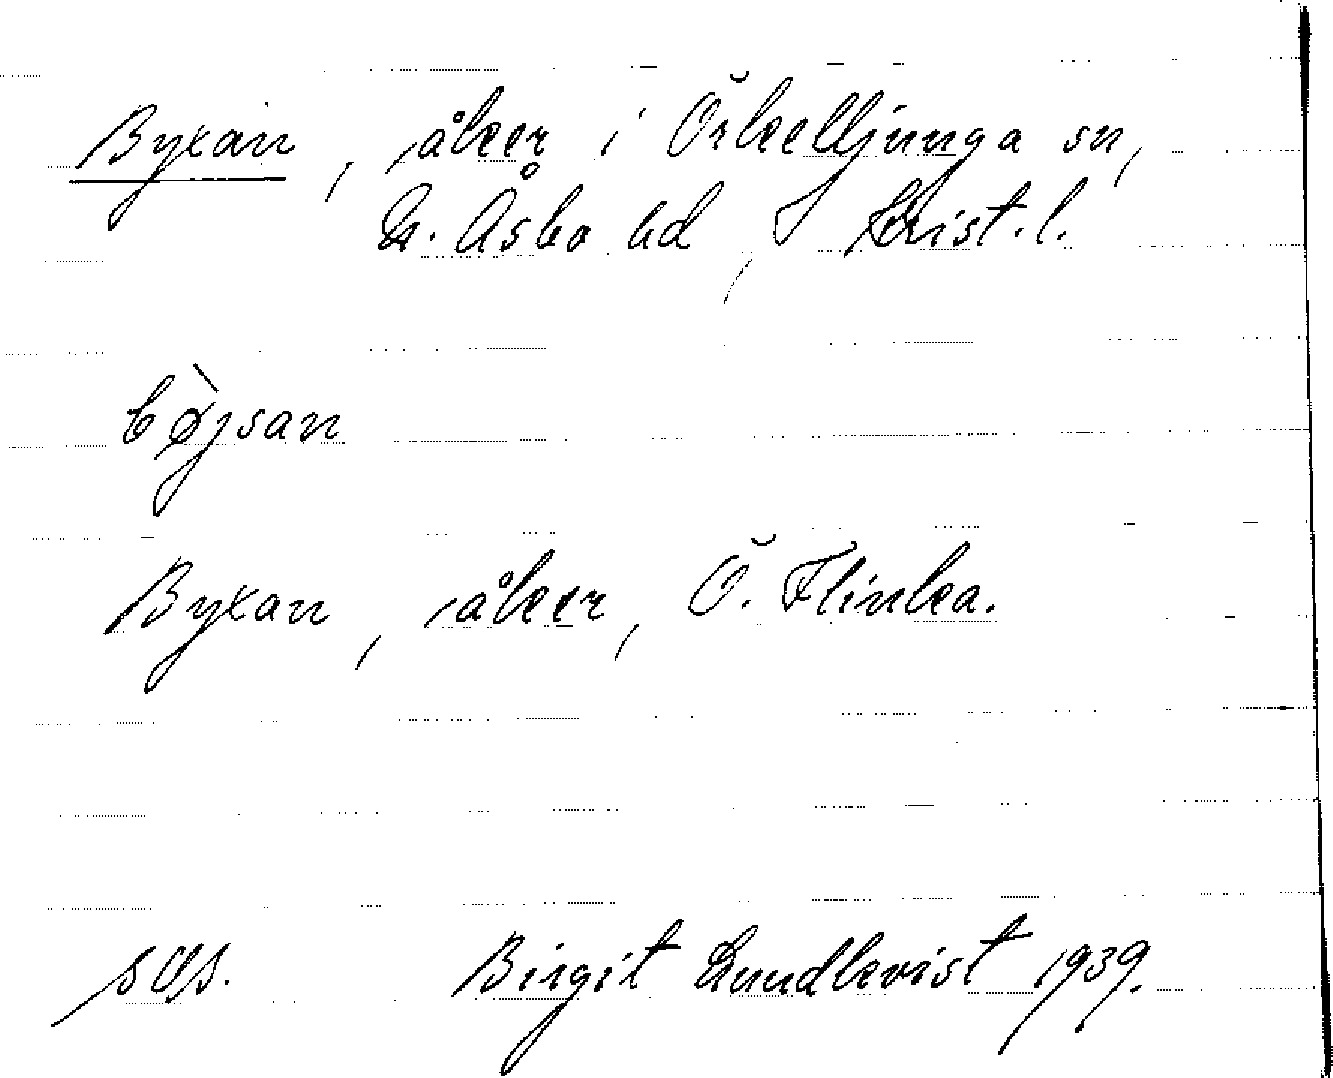 Byxan, åker i Örkelljunga sn,
N. Åsbo hd, Krist. l.
bø̀jsan
Byxan, åker, Ö. Flinka.
sős. Birgit Lundkvist 1939.